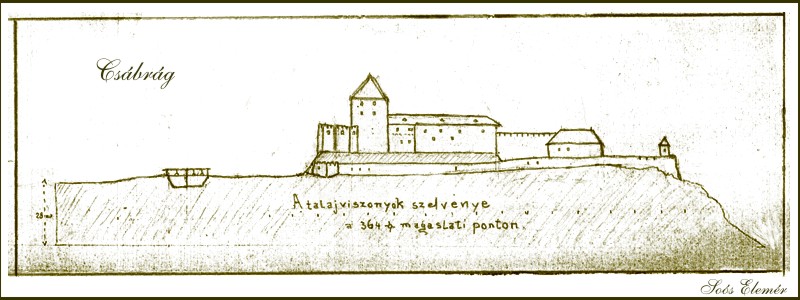 Csábrág
A talajviszonyok szelvénye
a 364 magaslati ponton.
Soós Elemér